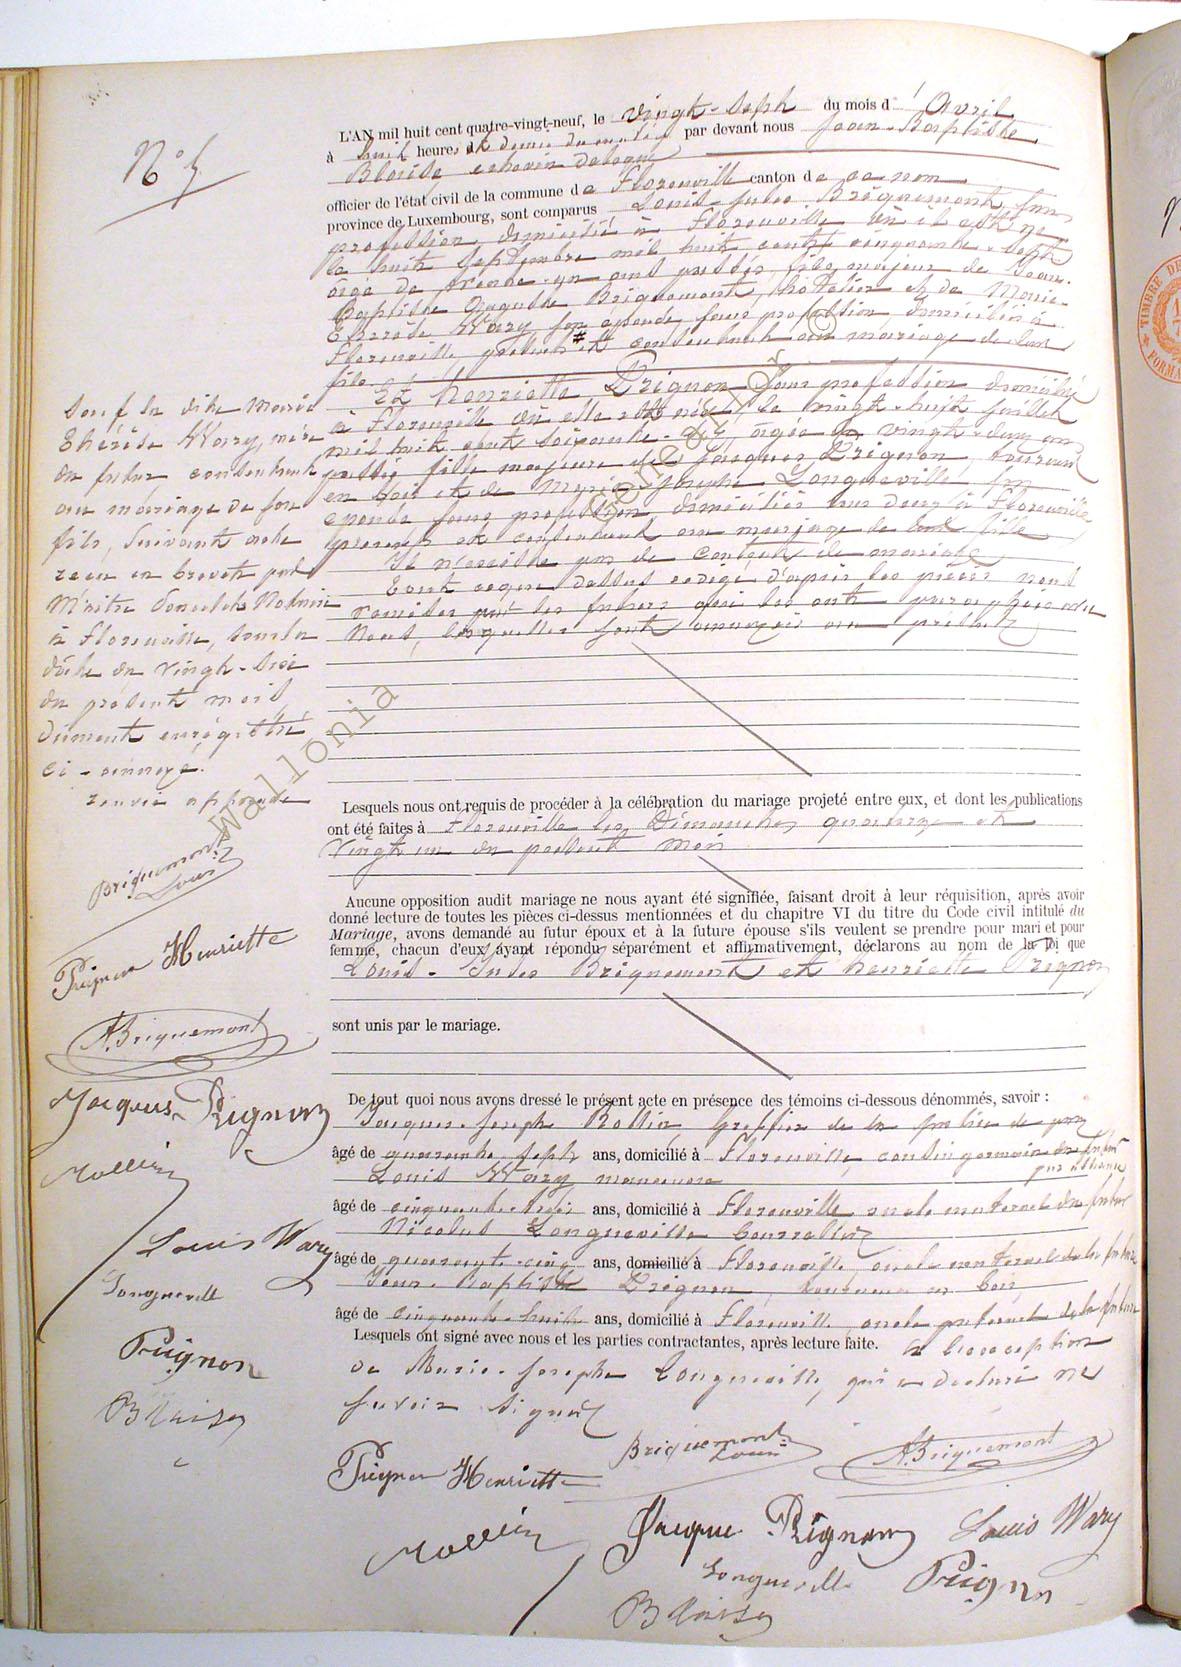 N° 5
L'AN mil huit cent quatre-vingt-neuf, le vingt-sept du mois d'Avril
à huit heures et demie du par devant nous Jean-Baptiste
Blaise échevin délégué
officier de l'état civil de la commune de Florenville canton de ce nom
province de Luxembourg, sont comparus Louis-Jules Briquemont, sans
profession, domicilié à Florenville où il est né
le huit Septembre mil huit cent cinquante-sept
âgé de trente-un ans passés, fils majeur de Jean-
Baptiste Auguste Briquemont, hôtelier et de Marie-
Thérèse Wary, son épouse, sans profession, domiciliés à
Florenville, présents et consentant au mariage de leur
fils.
Et Henriette Prignon, Sans profession domiciliée
à Florenville où elle est née le vingt-huit Juillet
mil huit cent soixante-six, âgée de vingt-deux ans
passés fille majeure de Jacques Prignon, tourneur
en bois et de Marie-Joseph Longueville son
épouse sans profession, domiciliés tous deux à Florenville
présents et consentant au mariage de leur fille
Il n'existe pas de contrat de mariage
Tout ce que dessus rédigé d'après les pièces nous
remises par les futurs qui les ont paraphées avec
Nous, lesquelles sont annexées au présent
sauf la dite Marie
Thérèse Wary, mère
du futur, consentant
au mariage de son
fils, suivant acte
reçu en brevet par
Maître Notaire
à Florenville, sous la
date du vingt-six
du présent mois
dûment enregistré
ci-annexé.
renvoi approuvé
Briquemont
Louis
Prignon Henriette
A. Briquemont
Jacques Prignon
Rollin
Louis Wary
Longueville
Prignon
Blaise
Lesquels nous ont requis de procéder à la célébration du mariage projeté entre eux, et dont les publications
ont été faites à Florenville les Dimanches quatorze et
vingt un du présent mois
Aucune opposition audit mariage ne nous ayant été signifiée, faisant droit à leur réquisition, après avoir
donné lecture de toutes les pièces ci-dessus mentionnées et du chapitre VI du titre du Code civil intitulé du
Mariage, avons demandé au futur époux et à la future épouse s'ils veulent se prendre pour mari et pour
femme, chacun d'eux ayant répondu séparément et affirmativement, déclarons au nom de la loi que
Louis-Jules Briquemont et Henriette Prignon
sont unis par le mariage.
De tout quoi nous avons dressé le présent acte en présence des témoins ci-dessous dénommés, savoir :
Jacques-Joseph Rollin Greffier de la justice de paix
âgé de quarante-sept ans, domicilié à Florenville cousin germain du futur
par alliance
Louis Wary manoeuvre
âgé de cinquante-trois ans, domicilié à Florenville oncle maternel du futur
Nicolas Longueville bourrelier
âgé de quarante-cinq ans, domicilié à Florenville, oncle maternel de la future
Jean-Baptiste Prignon, tourneur en bois
âgé de cinquante-huit ans, domicilié à Florenville oncle paternel de la future
Lesquels ont signé avec nous et les parties contractantes, après lecture faite. à l'exception
de Marie-Josephe Longueville, qui a déclaré ne
savoir signer
Briquemont
Louis
A. Briquemont
Prignon Henriette
Jacques Prignon
Louis Wary
Rollin
Longueville
Prignon
Blaise
© Geneanet Wallonia
TIMBRE DE
FORMA